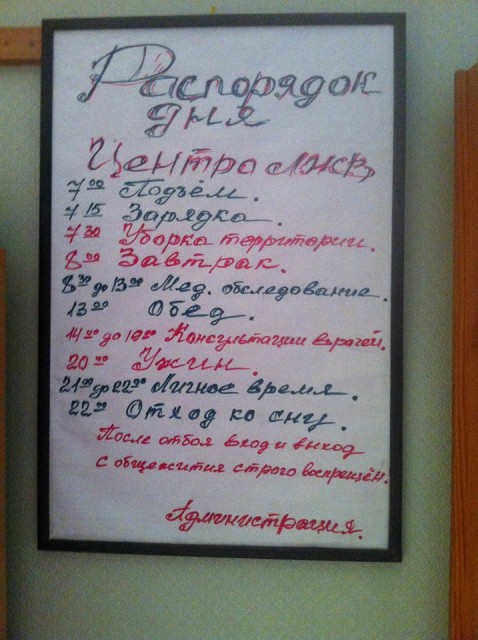 Распорядок
дня
Центра ЛЖВ
7 00 Подъём.
7 15 Зарядка.
7 30 Уборка территории.
8 00 Завтрак.
8 30 до 13 00 Мед. обследование.
13 00 Обед.
14 00 до 19 00 Консультации врачей.
20 00 Ужин.
21 00 до 22 00 Личное время.
22 00 Отход ко сну.
После отбоя вход и выход
с общежития строго воспрещён.
Администрация.